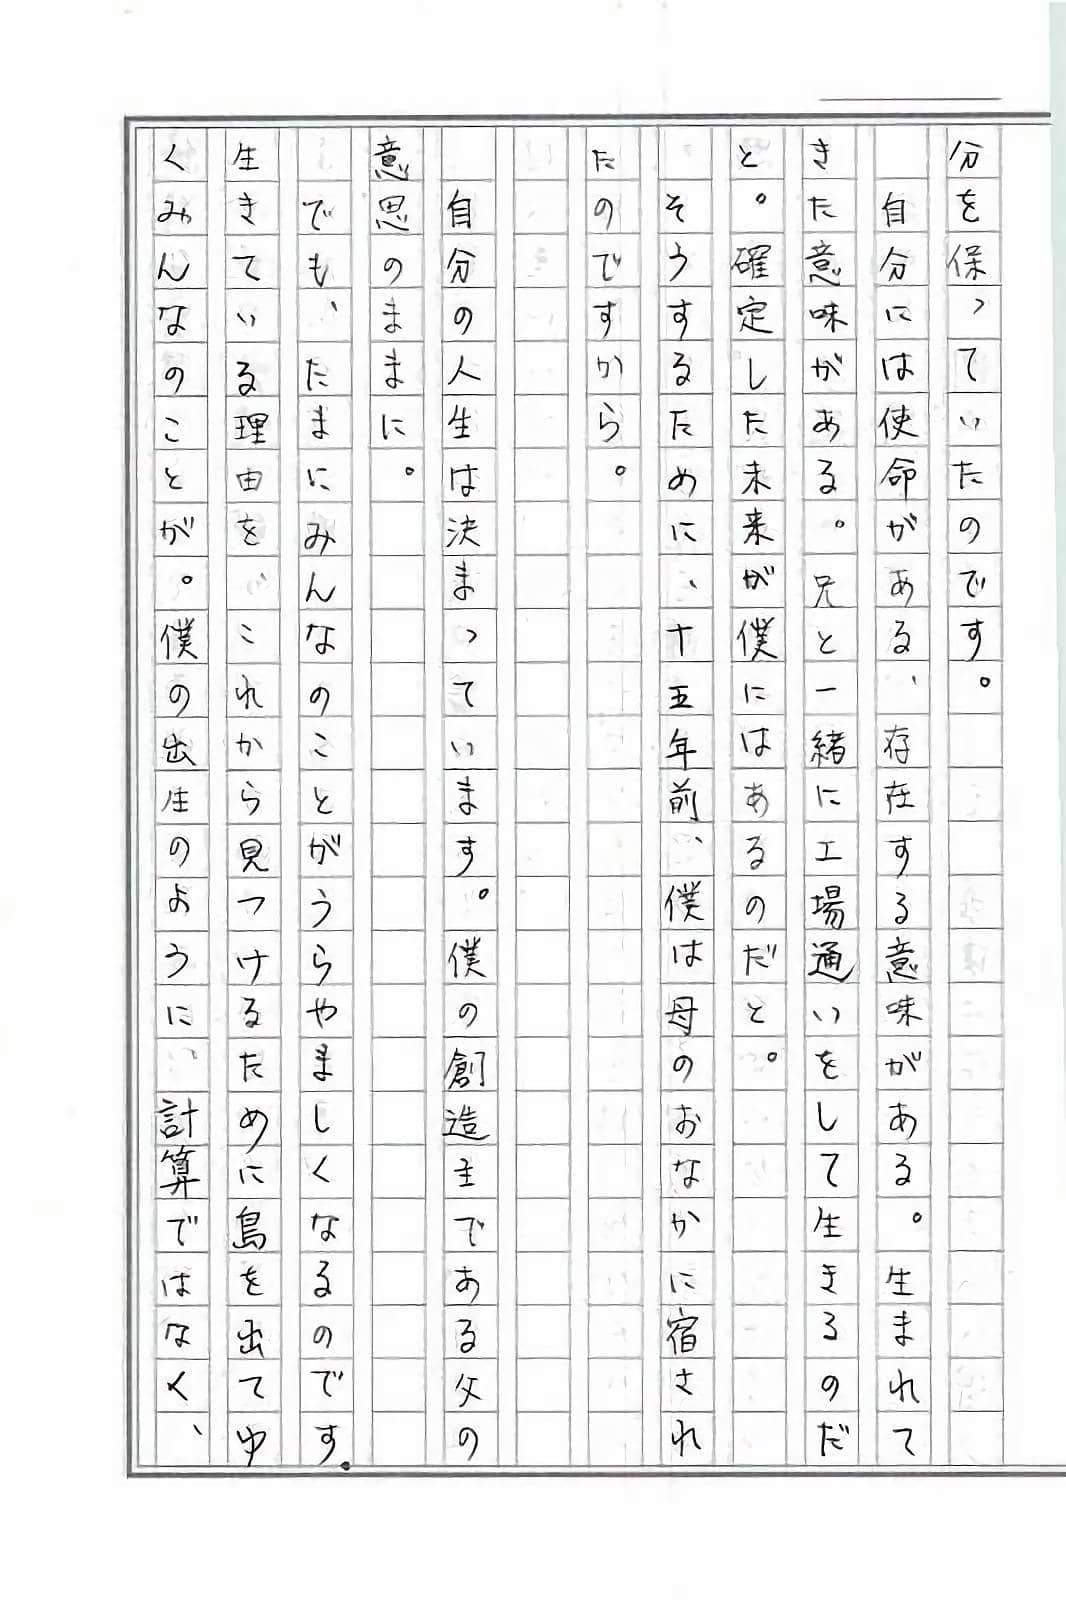 分を保っていたのです。
自分には使命がある、存在する意味がある。生まれて
きた意味がある。兄と一緒に工場通いをして生きるのだ
と。確定した未来が僕にはあるのだと。
そうするために、十五年前、僕は母のおなかに宿され
たのですから。
自分の人生は決まっています。僕の創造主である父の
意思のままに。
でも、たまにみんなのことがうらやましくなるのです。
生きている理由を、これから見つけるために島を出てゆ
くみんなのことが。僕の出生のように、計算ではなく、